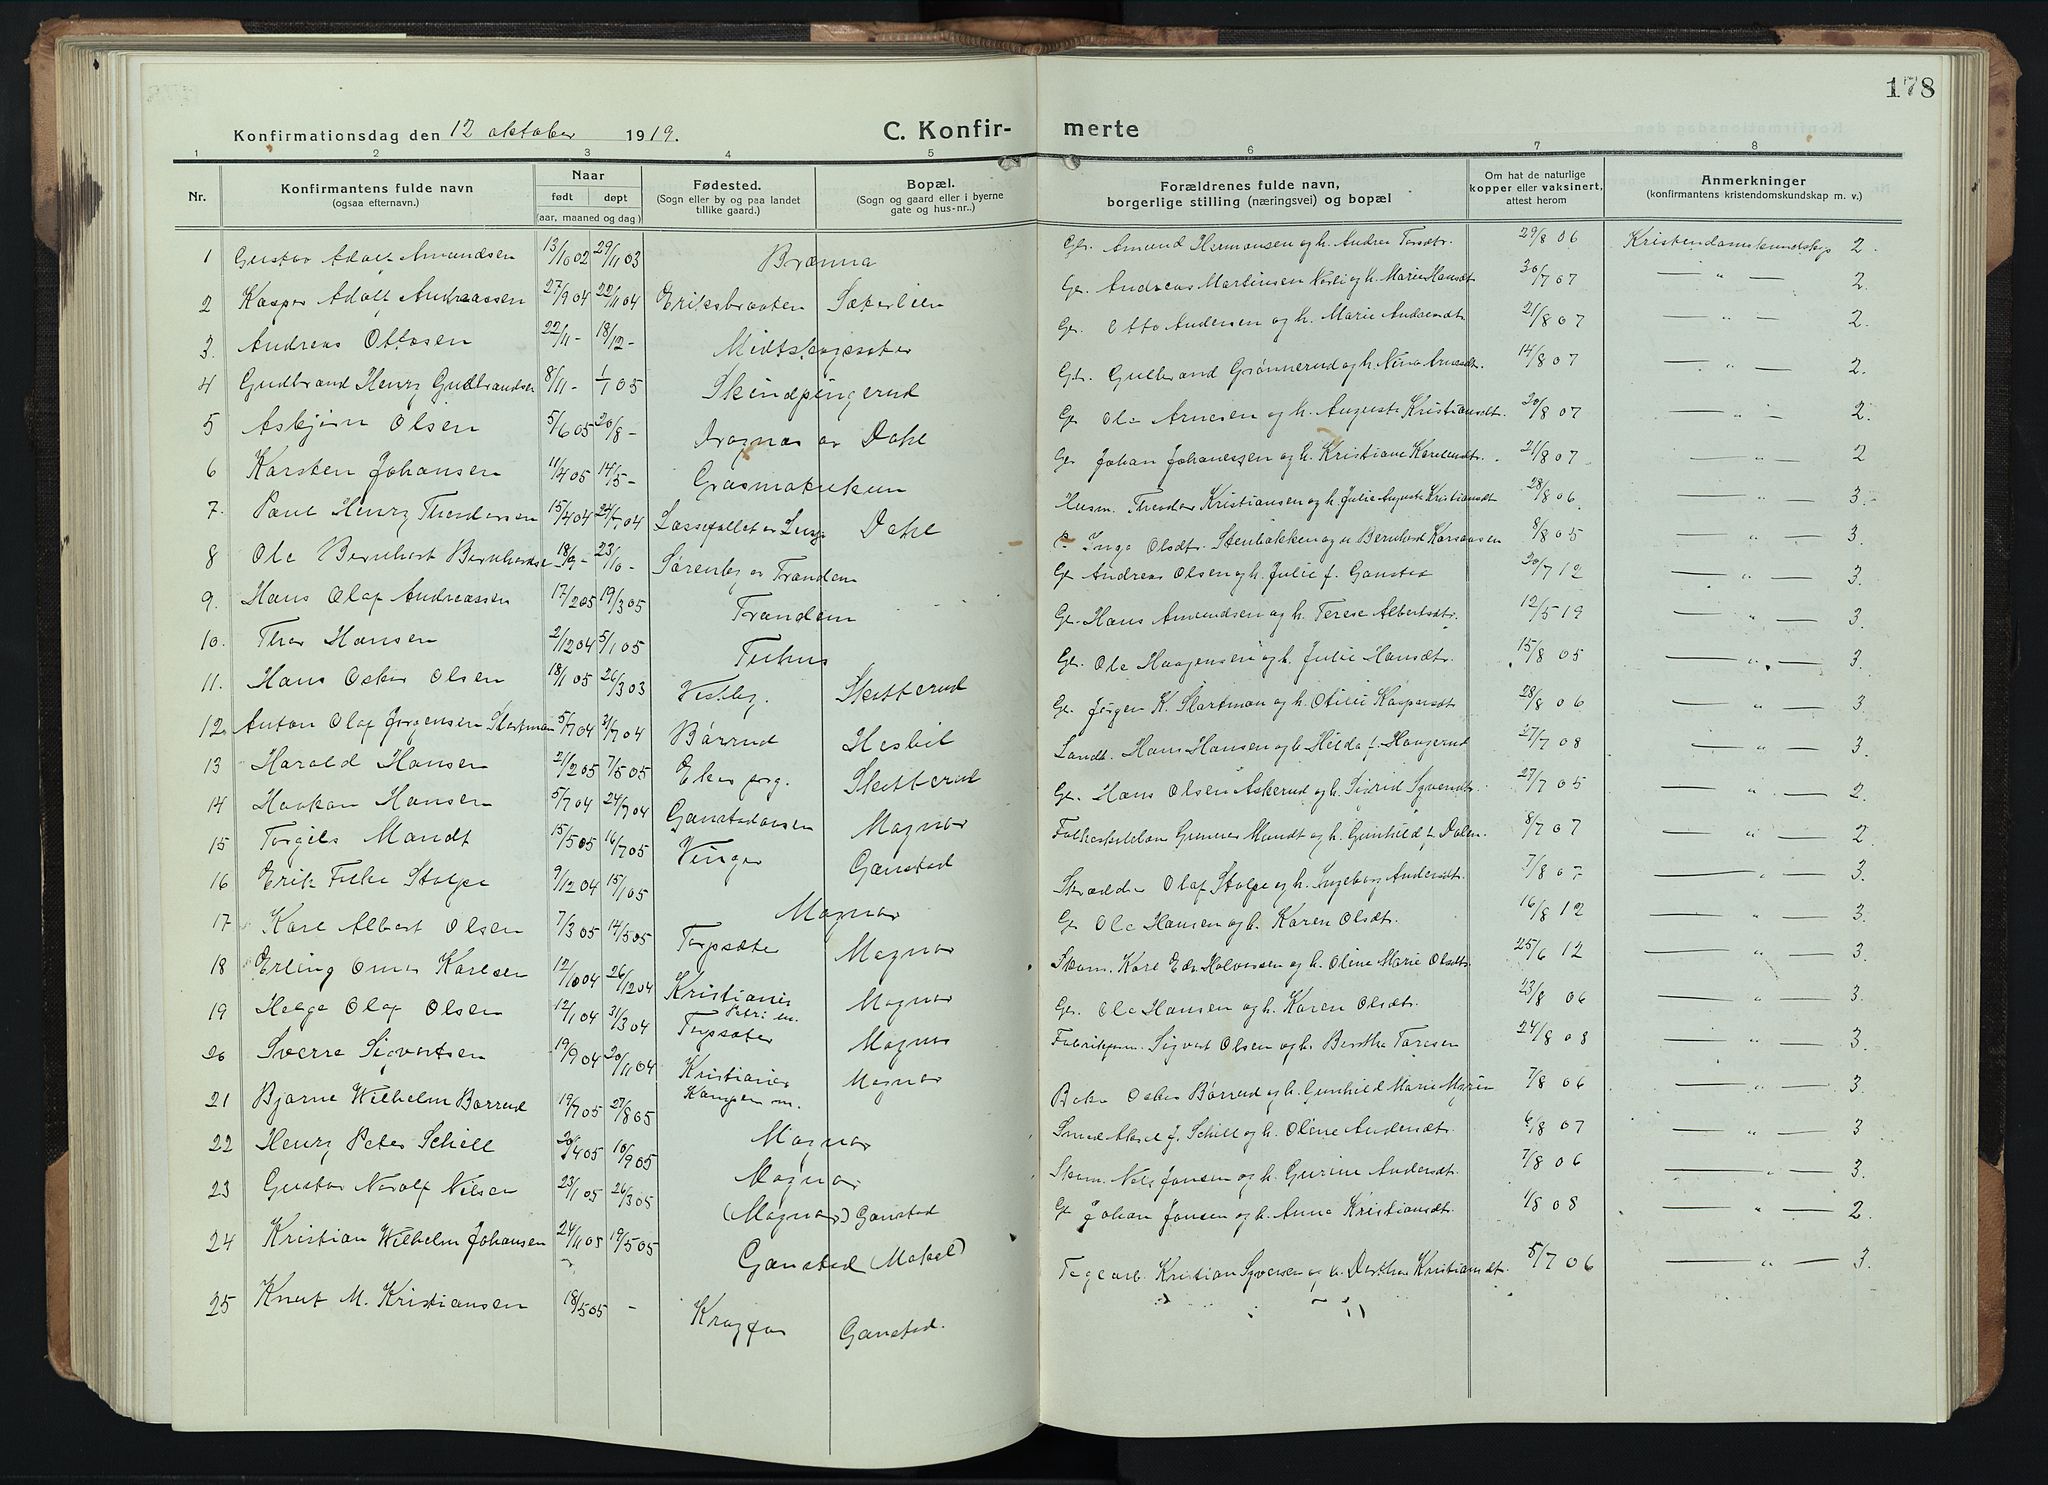 178
Konfirmationsdag den 12 oktober 1919.
C. Konfir- merte
1 2 3 4 5 6 7 8
Nr. Konfirmantens fulde navn (ogsaa efternavn.) Naar født døpt (aar, maaned og dag) Fødested. (Sogn eller by og paa landet tillike gaard.) Bopæl. (Sogn og gaard eller i byerne gate og hus-nr..) Forældrenes fulde navn, borgerlige stilling (næringsvei) og bopæl Om hat de naturlige kopper eller vaksinert, attest herom Anmerkninger (konfirmantens kristendomskundskap m. v.)
1 Gustav Adolf Amundsen 13/10 02 29/11 03 Brænna Gr. Amund Hermansen og h. Andrea Torsdtr. 29/8 06 Kristendomskundskap 2.
2 Kasper Adolf Andreassen 27/9 04 22/11 04 Eriksbraaten Sæterlien Gr. Andreas Martinsen Norli og h. Marie Hansdtr 30/7 07 — " — 2.
3. Andreas Ottosen 22/11 - 18/12 - Midtskogsæter Gr. Otto Andersen og h. Marie Andreasdtr 21/8 07 — " — 2.
4 Gudbrand Henry Gudbrandsen 8/11 - 1/1 05 Skindpungerud Gr. Gulbrand Grønnerud og h. Nina Arnesdtr 14/8 07 — " — 2.
5 Asbjørn Olsen 5/6 05 20/8 - Dahl Gr Ole Arnesen og h. Augusta Kristiansdtr. 20/8 07 — " — 2.
6 Karsten Johansen 11/4 05 14/5 - Gr. Johan Johanessen og h. Kristiane Karelusdtr. 21/8 07 — " — 2
7. Paul Henry Theodorsen 15/4 04 24/7 04 Dahl Husm. Theodor Kristiansen og h. Julie Augusta Kristiansdt 28/8 06 — " — 3.
8 Ole Bernhart Bernhardse 18/9 - 23/10 - Sørenby Tranden Inga Olsdtr. Stenbakken og u Bernhard Karsansen 8/8 05 — " — 3.
9. Hans Olaf Andreassen 17/2 05 19/3 05 Tranden Gr Andreas Olsen og h. Julie f. Gaustad 20/7 12 — " — 3.
10. Thor Hansen 2/12 04 5/1 05 Gr. Hans Amundsen og h. Terese Albertsdtr. 12/5 19 — " — 3.
11. Hans Oskar Olsen 18/1 05 26/3 03 Vestby. Skitterud Gr. Ole Haagensen og h. Julie Hansdtr. 15/8 05 — " — 3.
12. Anton Olaf Jørgensen Slartman 5/7 04 31/7 04 Børrud Hesbøl Gr. Jørgen K. Slartman og h. Otilie Kaspersdtr 28/8 06 — " — 3.
13 Harald Hansen 21/2 05 7/5 05 Ekersjorg. Skitterud Landt. Hans Hansen og h. Hilda f. Haugerud 27/7 08 — " — 3.
14 Haakon Hansen 5/7 04 24/7 04 Ganstadaasen Magnor Gr. Hans Olsen Askerud og h. Sigrid Syversdtr. 27/7 05 — " — 2.
15 Torgils Mandt 15/5 05 16/7 05 Vinger Gaustad Gunnar Mandt og h. Gunhild f. Dalen. 8/7 07 — " — 2.
16 Erik Folke Stolpe 9/12 04 15/1 05 Magnor Skrædder Olaf Stolpe og h. Ingeborg Andersdt. 7/8 07 — " — 3.
17 Karl Albert Olsen 7/3 05 14/5 05 Torpsæter Magnor Gr Ole Hansen og h. Karen Olsdt. 16/8 12 — " — 3.
18 Erling Omar Karlsen 12/10 04 26/12 04 Kristiania Petri m. Magnor Skom. Karl Edv. Halvorsen og h. Oline Marie Olsdtr. 25/6 12 — " — 3.
19 Helge Olaf Olsen 12/1 04 31/3 04 Torpsæter Magnor Gr. Ole Hansen og h. Karen Olsdtr. 23/8 06 — " — 3.
20 Sverre Sigvartsen 19/9 04 20/11 04 Kristiania Kampen m. Magnor Sigvart Olsen og h. Bertha Toresen 24/8 08 — " — 3.
21 Bjarne Wilhelm Børrud 19/7 05 27/8 05 Magnor Baker Oskar Børrud og h. Gunhild Marie Myrin 7/8 06 — " — 3.
22 Henry Peter Schill 20/4 05 10/9 05 Magnor Smed Aksel f. Schill og h. Oline Andersdtr. 6/8 07 — " — 3.
23 Gustav Norolf Nilsen 23/1 05 26/3 05 (Magnor) Gaustad Skom. Nils Jonsen og h. Gurine Andersdtr. 7/8 06 — " — 3.
24 Kristian Wilhelm Johansen 24/11 05 19/5 05 Gaustad (Mohol) Gr Johan Jonsen og h. Anna Kristiansdt. 1/8 08 — " — 2.
25 Knut M. Kristiansen 18/5 05 - Krogfos Gaustad. Teglarb. Kristian Syversen og h. Dorthea Kristiansdt. 5/7 06 — " — 3.